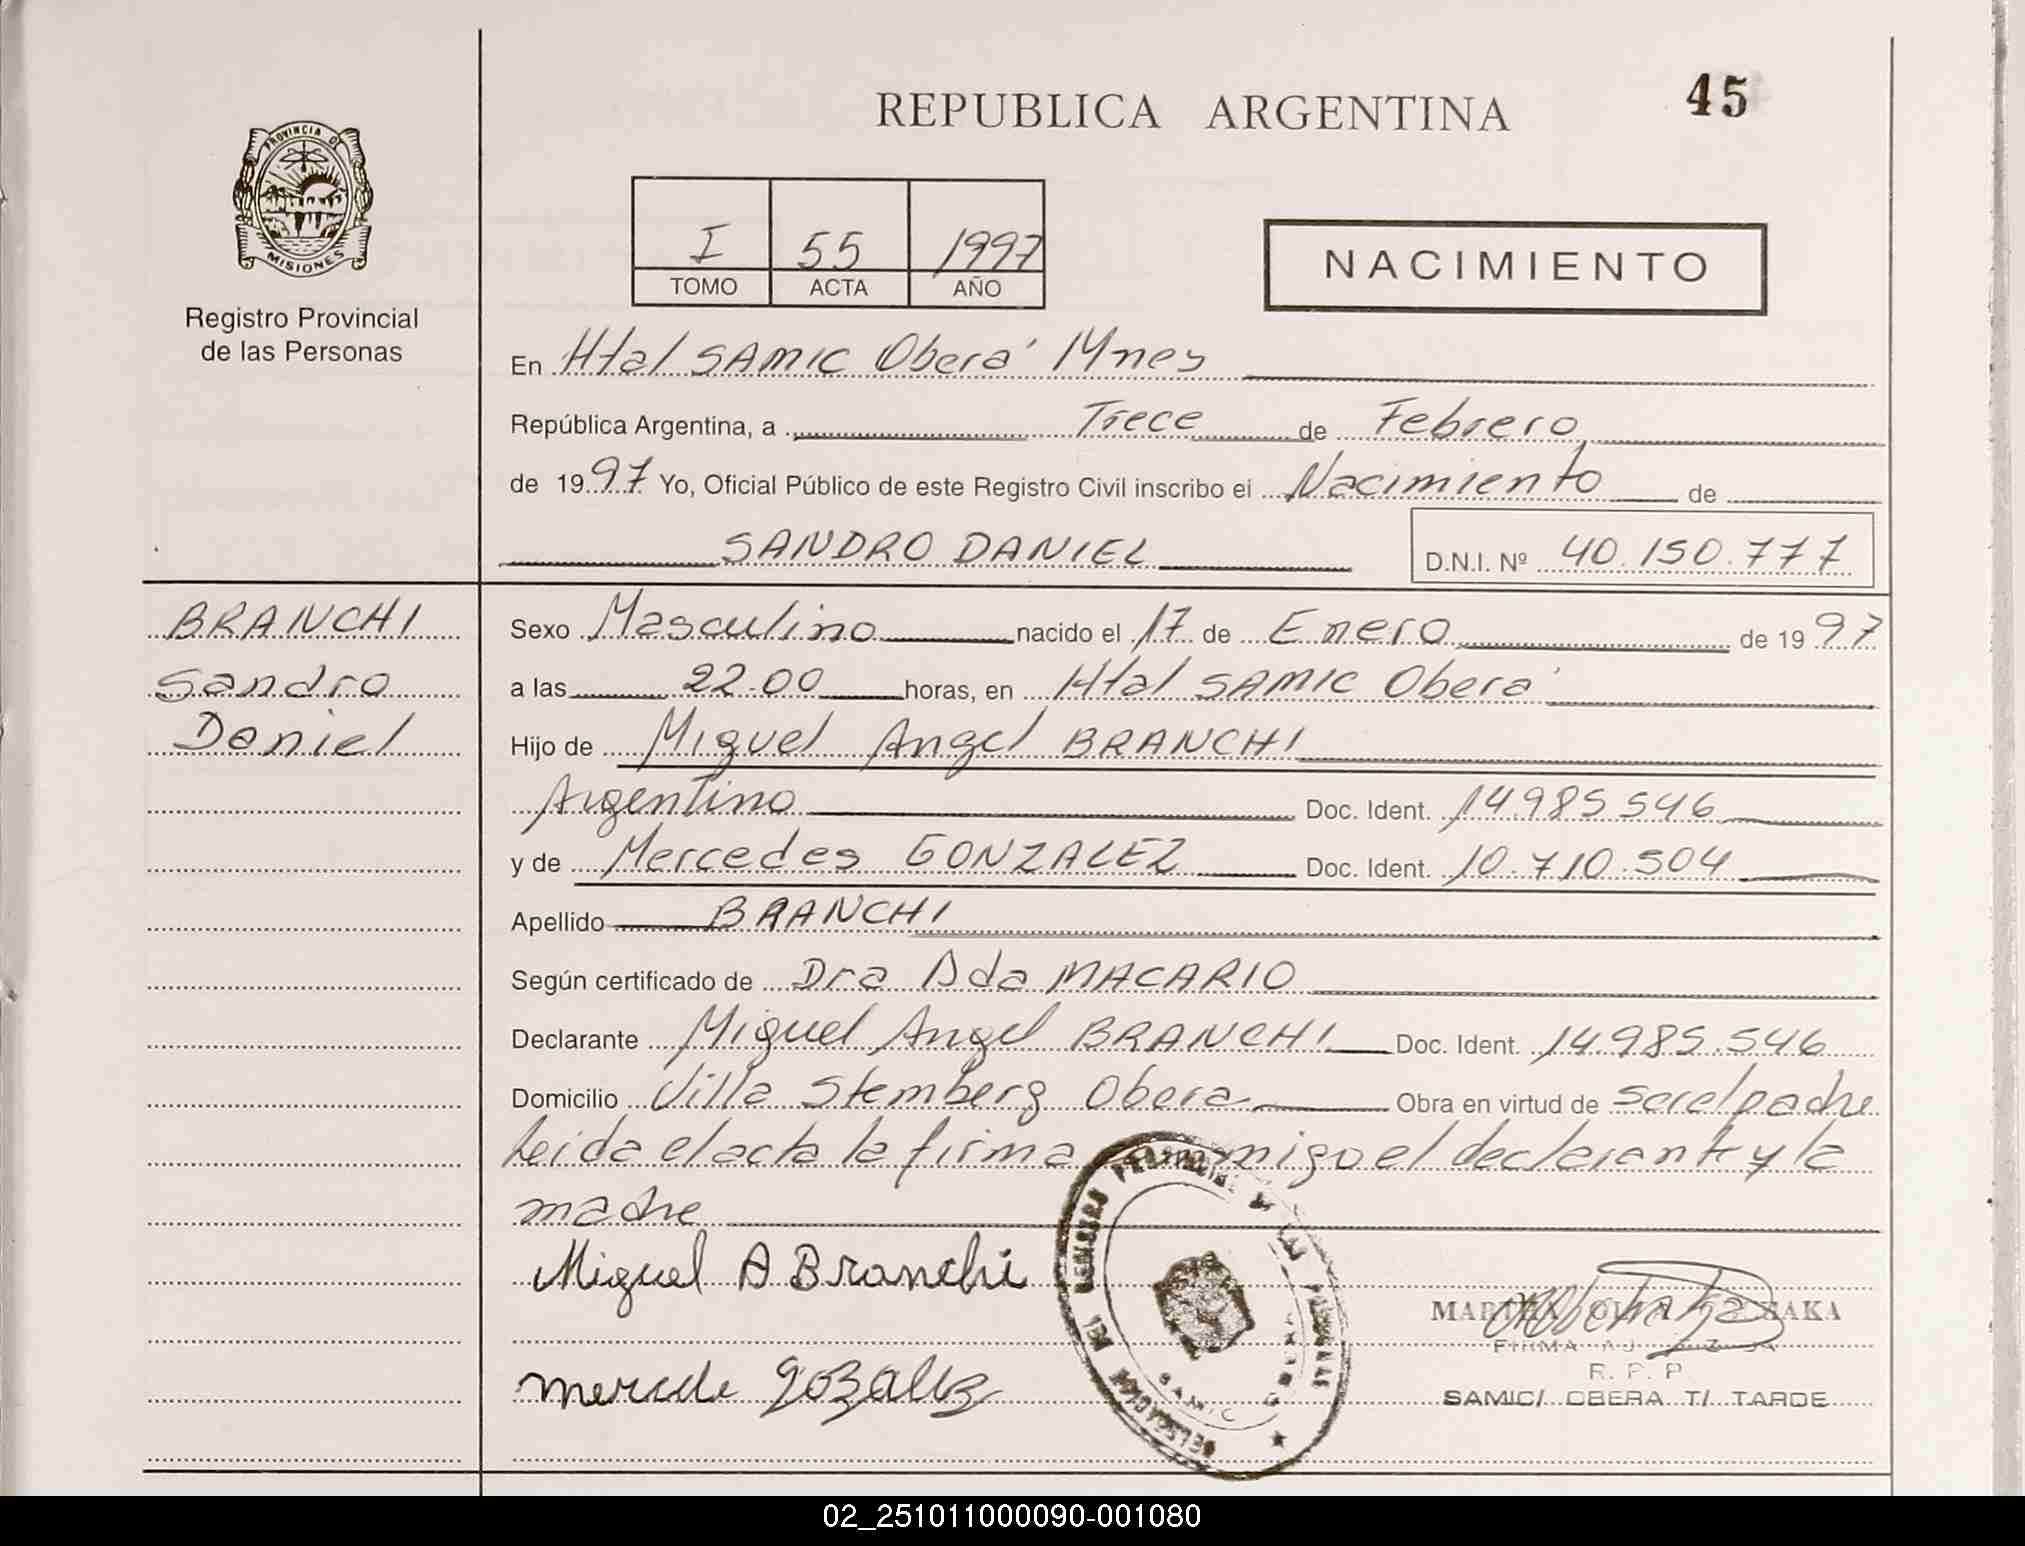 45
REPUBLICA ARGENTINA
PROVINCIA DE
MISIONES
Registro Provincial
de las Personas
I 55 1997
TOMO ACTA AÑO
NACIMIENTO
En Htal SAMIC Oberá Mnes
República Argentina, a Trece de Febrero
de 1997 Yo, Oficial Público de este Registro Civil inscribo el Nacimiento de
SANDRO DANIEL D.N.I. Nº 40.150.777
BRANCHI
Sandro
Daniel
Sexo Masculino nacido el 17 de Enero de 1997
a las 22.00 horas, en Htal SAMIC Oberá
Hijo de Miguel Angel BRANCHI
Argentino Doc. Ident. 14.985.546
y de Mercedes GONZALEZ Doc. Ident. 10.710.504
Apellido BRANCHI
Según certificado de Dra Ada MACARIO
Declarante Miguel Angel BRANCHI Doc. Ident. 14.985.546
Domicilio Villa Stemberg Obera Obra en virtud de ser el padre
Leida el acta la firma migo el declarante y la
madre
Miguel A Branchi
mercde gozalez
FIRMA
R. P. P
SAMIC/ OBERA T/ TARDE
02_251011000090-001080